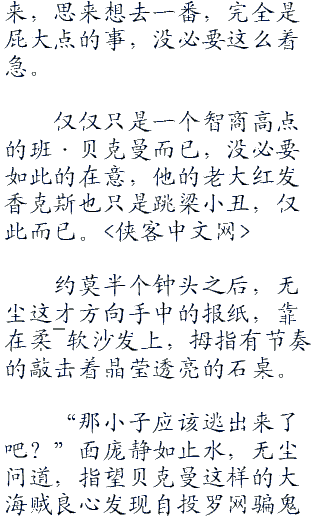 来，思来想去一番，完全是
屁大点的事，没必要这么着
急。
仅仅只是一个智商高点
的班·贝克曼而已，没必要
如此的在意，他的老大红发
香克斯也只是跳梁小丑，仅
此而已。<侠客中文网>
约莫半个钟头之后，无
尘这才方向手中的报纸，靠
在柔¯软沙发上，拇指有节奏
的敲击着晶莹透亮的石桌。
“那小子应该逃出来了
吧？”面庞静如止水，无尘
问道，指望贝克曼这样的大
海贼良心发现自投罗网骗鬼